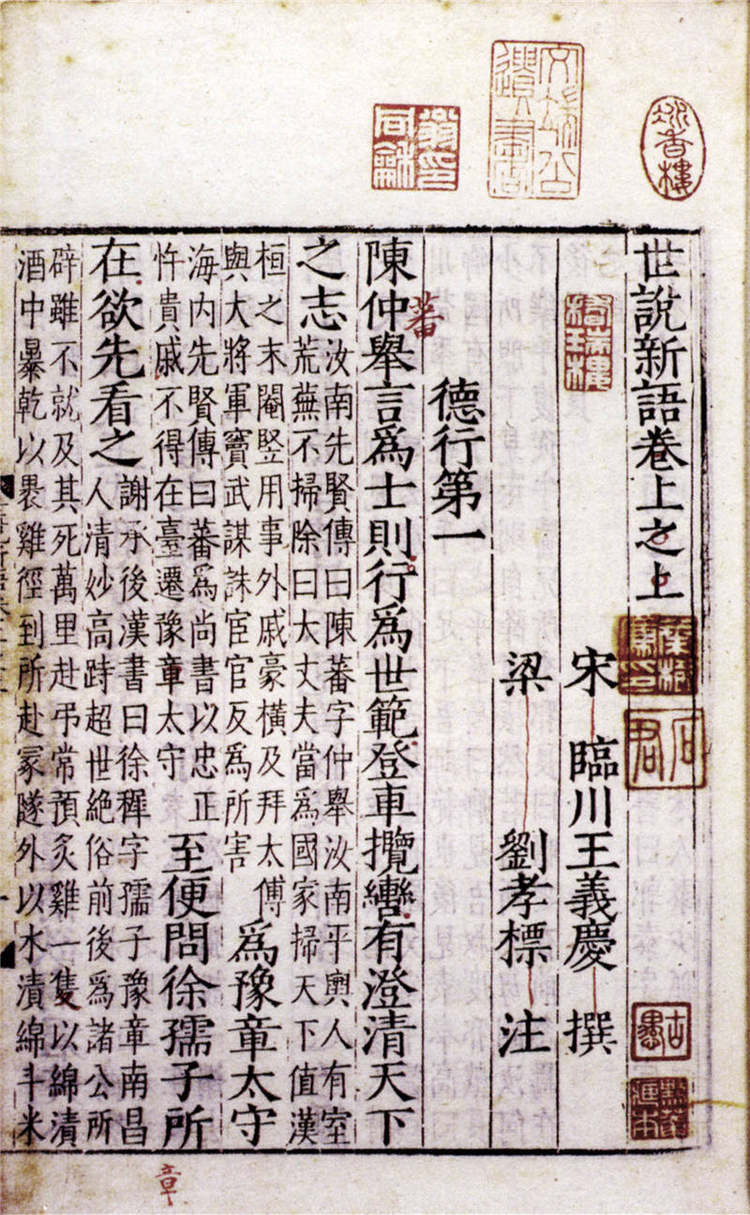 翁印同龢
世說新語卷上之上
宋 臨川王義慶 撰
梁 劉孝標 注
德行第一
陳仲舉言爲士則行爲世範登車攬轡有澄清天下
蕃
之志 汝南先賢傳曰陳蕃字仲舉汝南平輿人有室
荒蕪不掃除曰大丈夫當爲國家掃天下值漢
桓之末閹竪用事外戚豪橫及拜太傅
與大將軍竇武謀誅宦官反爲所害 爲豫章太守
海内先賢傳曰蕃爲尚書以忠正
忤貴戚不得在臺遷豫章太守 至便問徐孺子所
在欲先看之 謝承後漢書曰徐穉字孺子豫章南昌
人清妙高跱超世絶俗前後爲諸公所
辟雖不就及其死萬里赴弔常預炙雞一隻以綿漬
酒中暴乾以裹雞徑到所赴冢隧外以水漬綿斗米
章